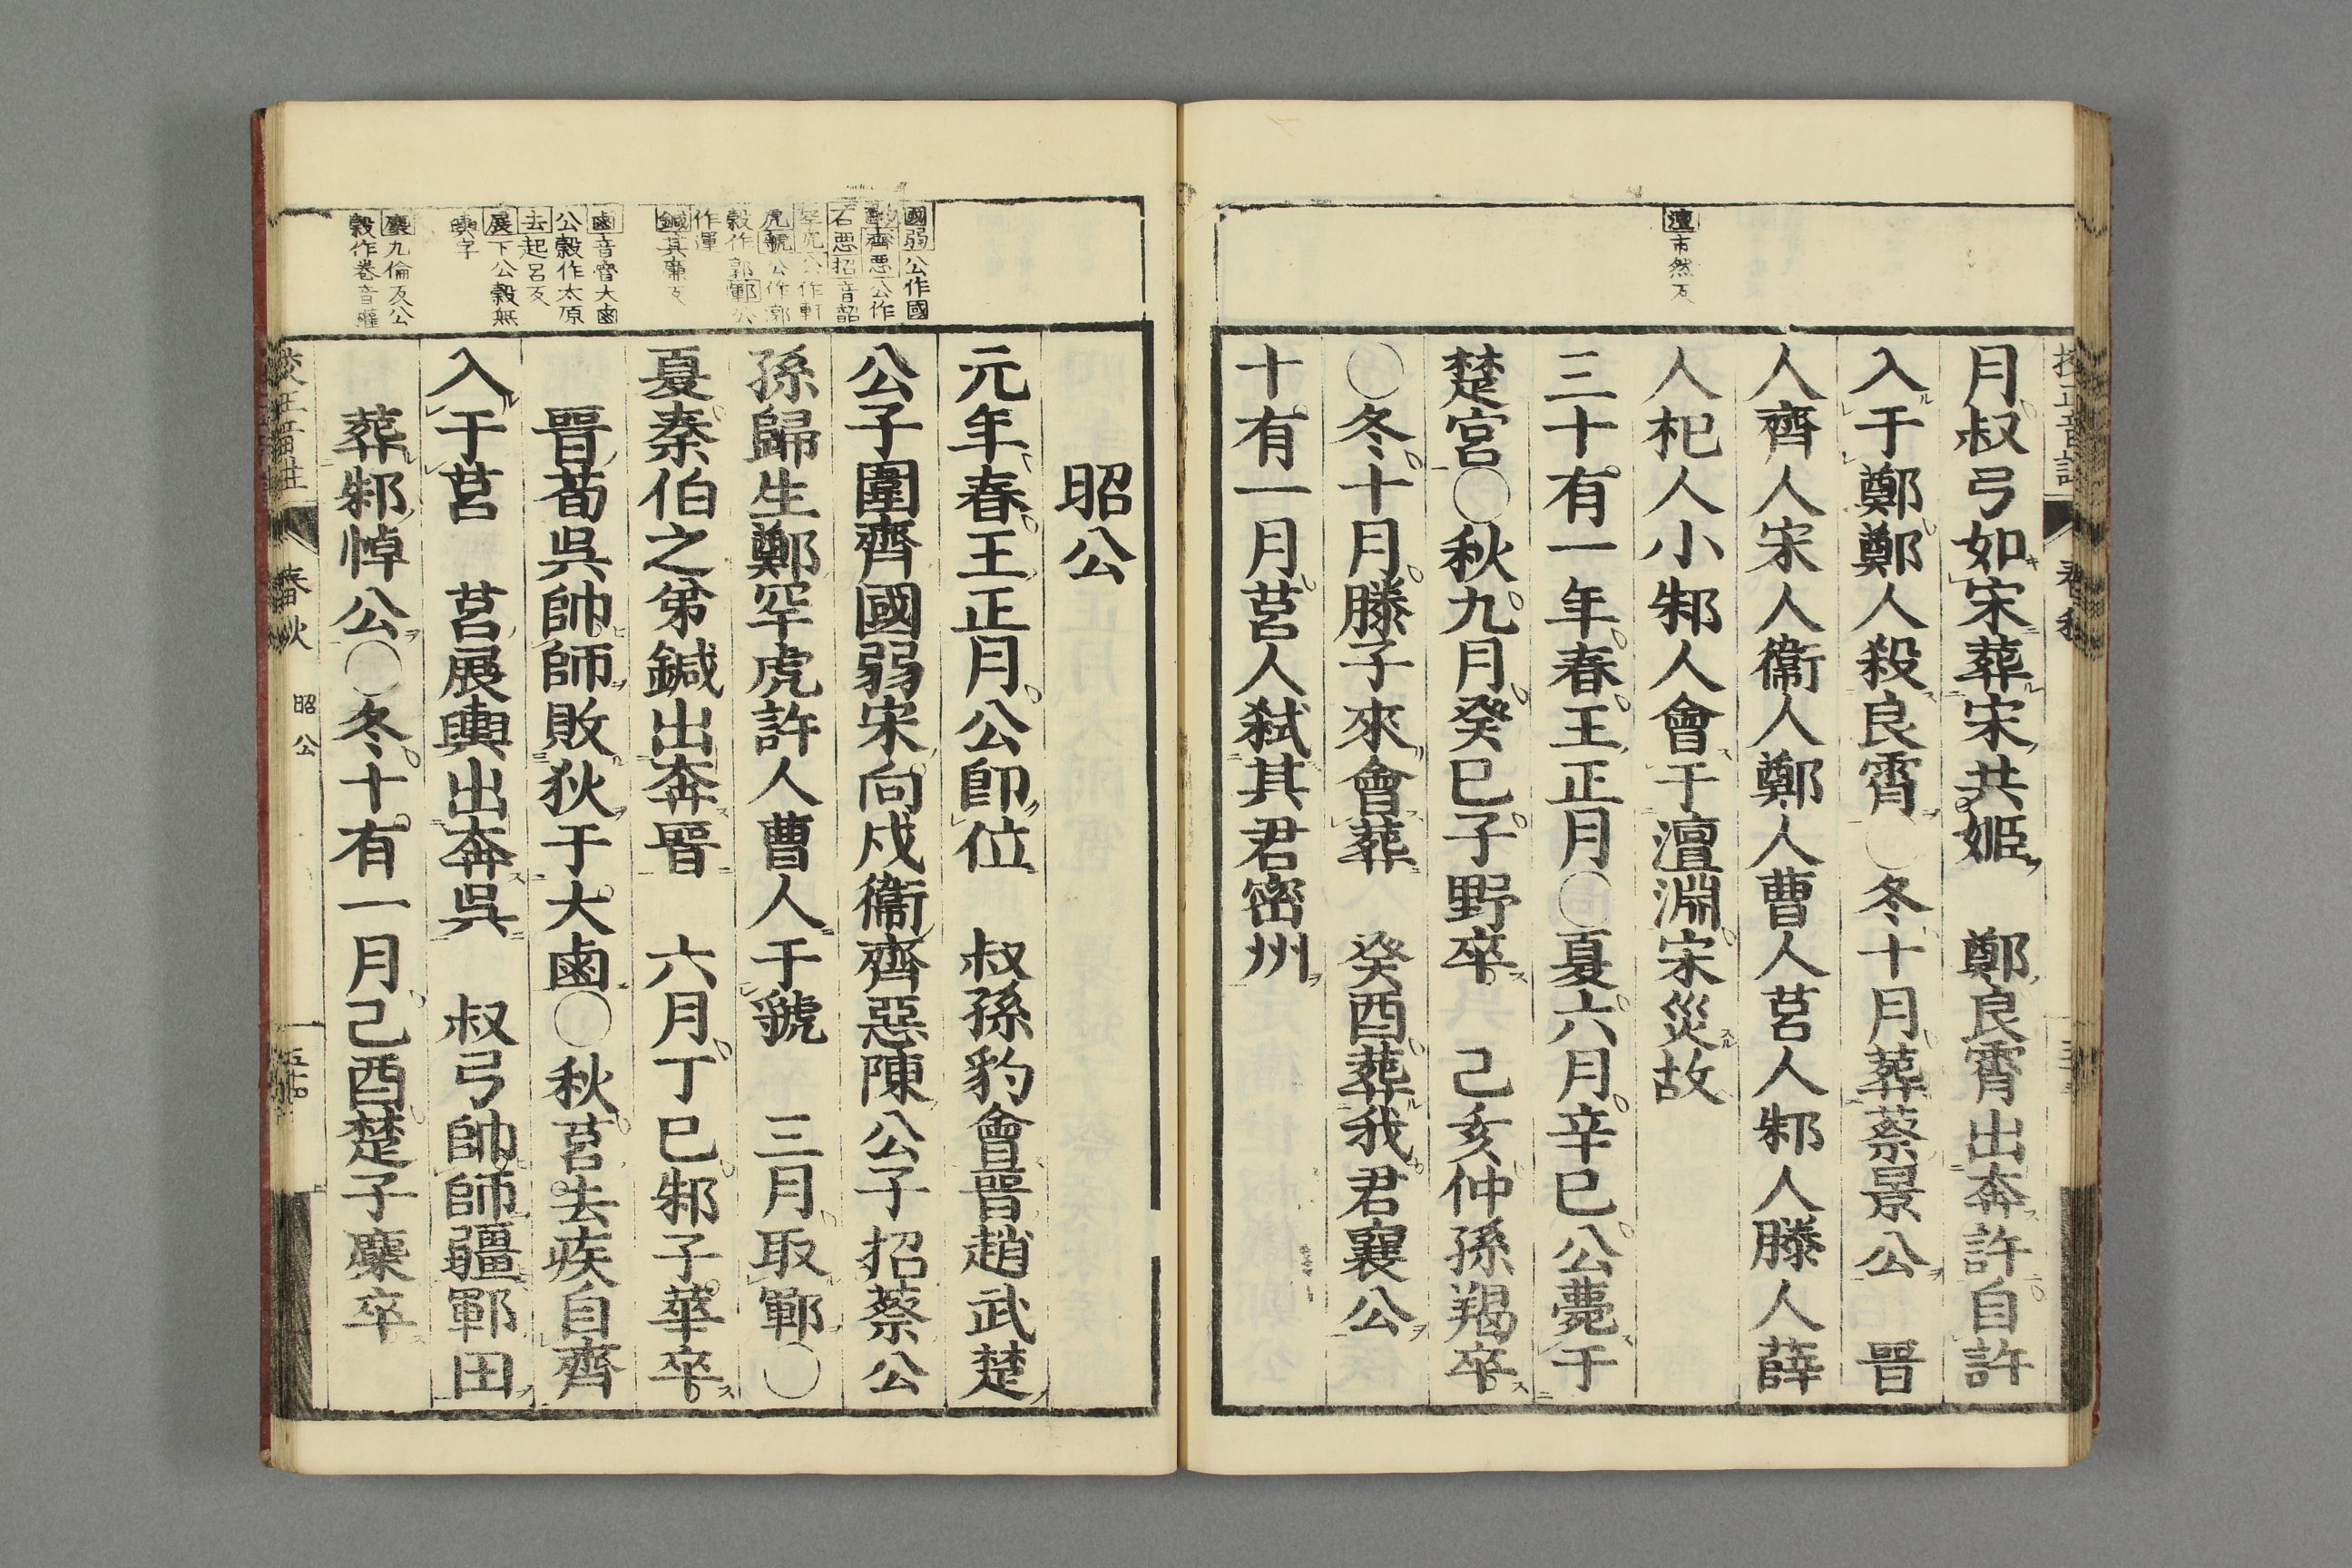 澶市然反
月叔弓如宋葬宋共姬　鄭良霄出奔許自許
入于鄭鄭人殺良霄〇冬十月葬蔡景公　晉
人齊人宋人衞人鄭人曹人莒人邾人滕人薛
人杞人小邾人會于澶淵宋災故
三十有一年春王正月〇夏六月辛巳公薨于
楚宮〇秋九月癸巳子野卒　己亥仲孫羯卒
〇冬十月滕子來會葬　癸酉葬我君襄公
十有一月莒人弑其君密州
國弱公作國
酌齊悪公作
石悪招音韶
罕虎公作軒
虎虢公作漷
穀作郭鄆公
作運
鍼其廉反
鹵音魯大鹵
公穀作太原
去起呂反
展下公穀無
輿字
麇九倫反公
穀作卷音權
昭公
元年春王正月公卽位　叔孫豹會晉趙武楚
公子圍齊國弱宋向戍衞齊惡陳公子招蔡公
孫歸生鄭罕虎許人曹人于虢　三月取鄆〇
夏秦伯之弟鍼出奔晉　六月丁巳邾子華卒
晉荀吳帥師敗狄于大鹵〇秋莒去疾自齊
入于莒　莒展輿出奔吳　叔弓帥師疆鄆田
葬邾悼公〇冬十有一月己酉楚子麇卒
春秋　昭公